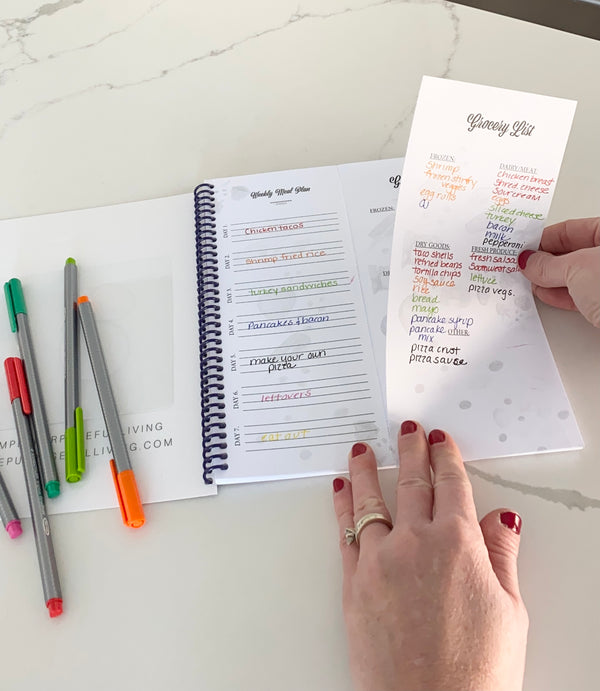 Weekly Meal Plan
DAY 1.
Chicken tacos
DAY 2.
Shrimp fried rice
DAY 3.
turkey sandwiches
DAY 4.
Pancakes + bacon
DAY 5.
make your own
pizza
DAY 6.
leftovers
DAY 7.
eat out
G
FROZEN:
Grocery List
FROZEN:
shrimp
frozen stirfry
veggies
egg rolls
OJ
DAIRY/MEAT
chicken breast
shred cheese
sour cream
eggs
sliced cheese
turkey
bacon
milk
pepperoni
DRY GOODS:
taco shells
refried beans
tortilla chips
soy sauce
rice
bread
mayo
pancake syrup
pancake
mix
pizza crust
pizza sauce
FRESH PRODUCE
fresh salsa
lettuce
pizza vegs.
OTHER:
FUL LIVING
LIVING.COM